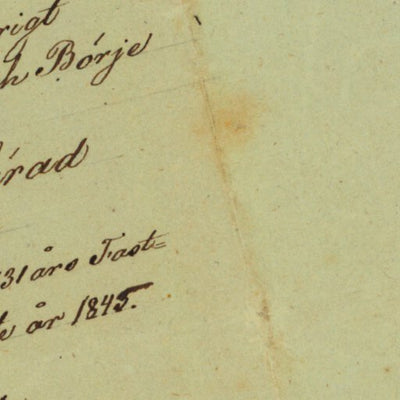 rigt
h Börje
årad
31 års Fast=
år 1845.